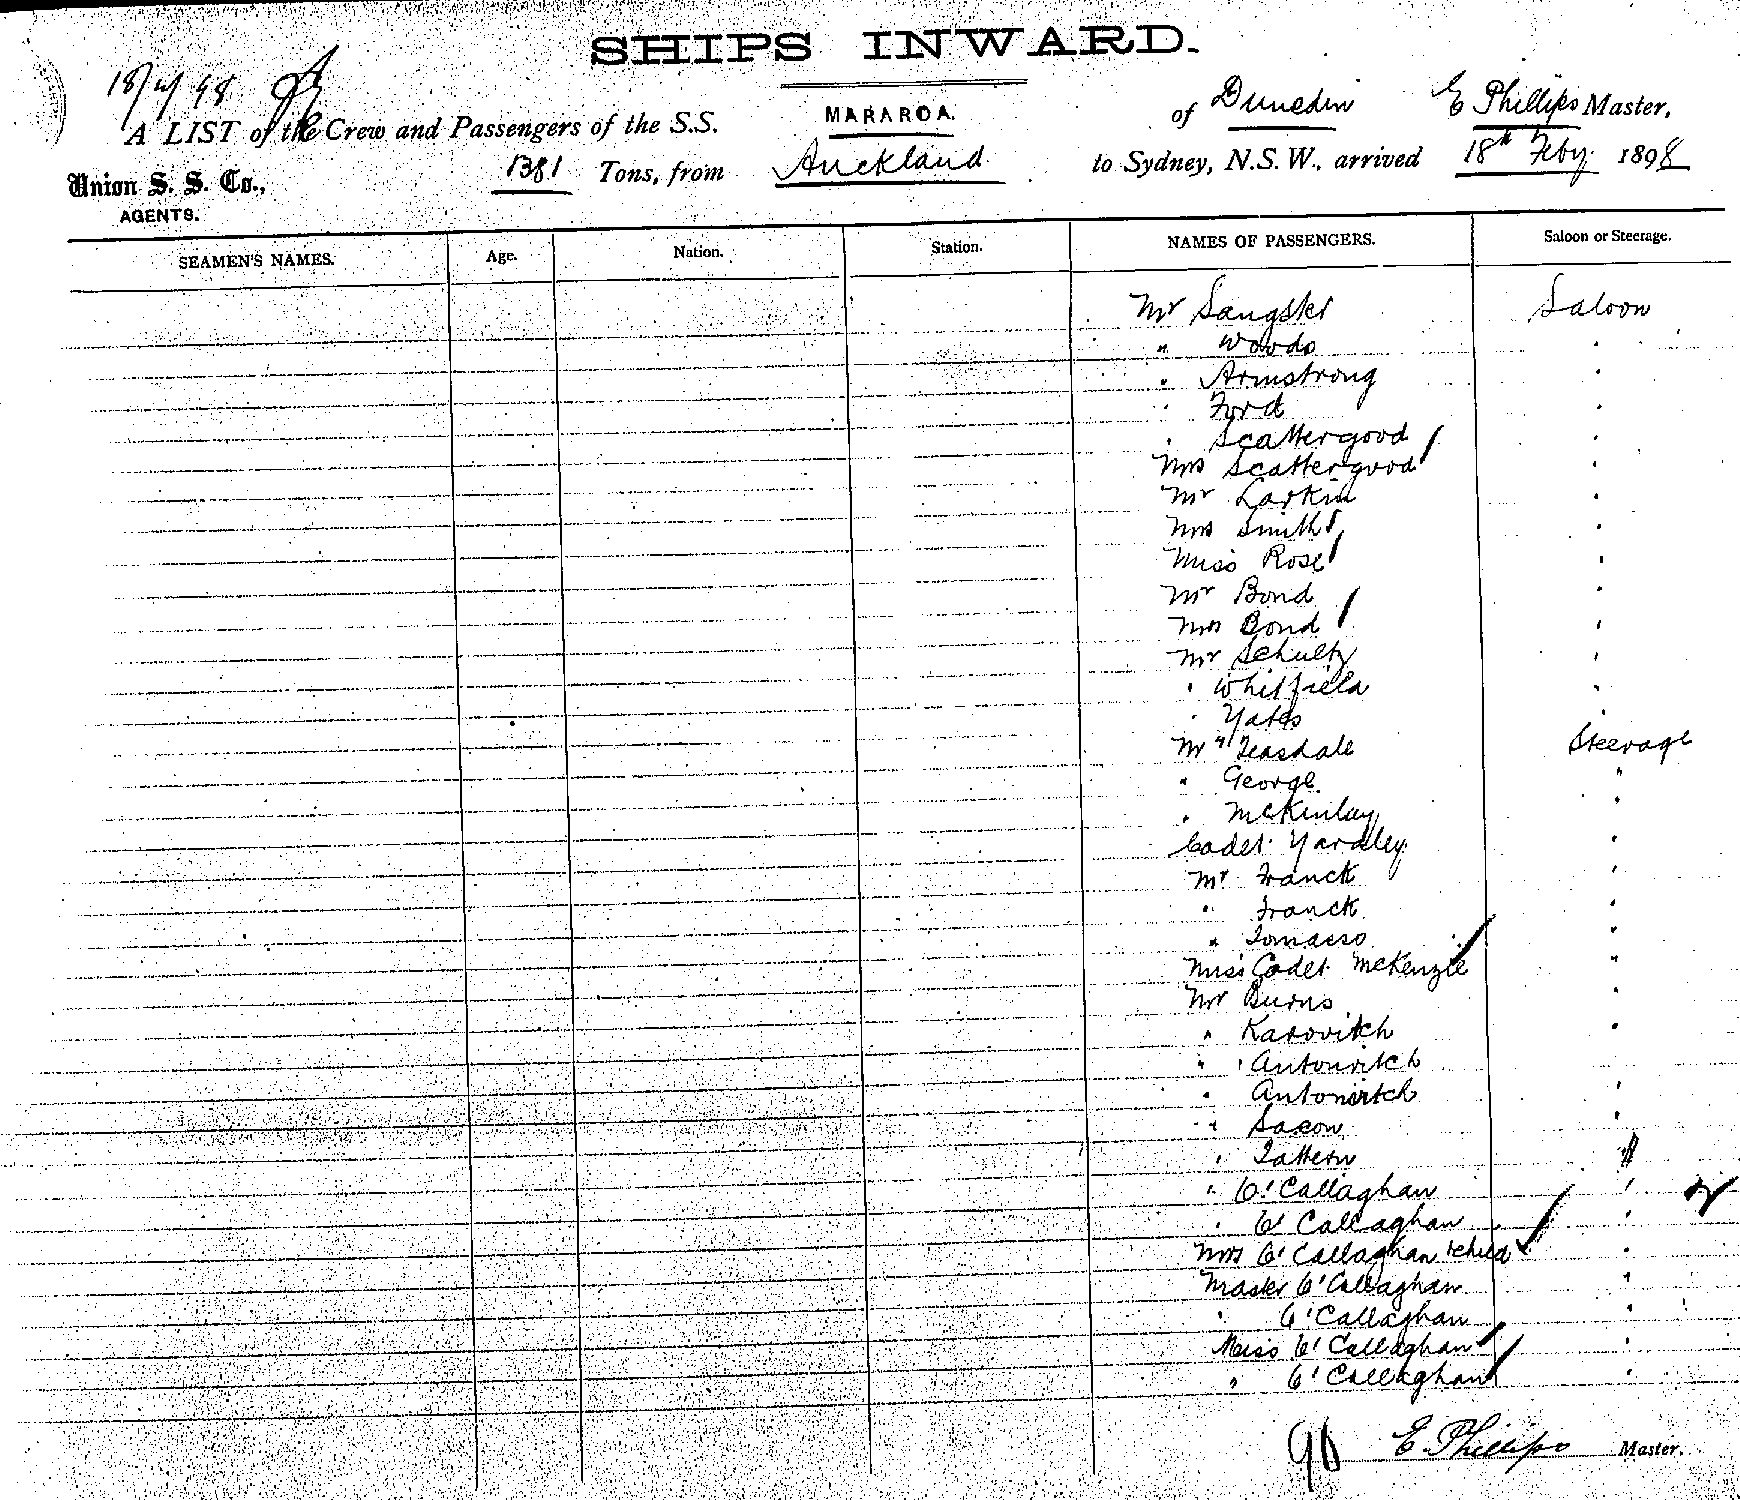 SHIPS INWARD.
A LIST of the Crew and Passengers of the S.S. MARAROA. of Dunedin E Phillips Master,
Union S. S. Co., 1381 Tons, from Auckland to Sydney, N.S.W., arrived 18th Feby. 1898
AGENTS.
SEAMEN'S NAMES. Age. Nation. Station. NAMES OF PASSENGERS. Saloon or Steerage.
Mr Sangster Saloon
" Woods "
" Armstrong "
" Ford "
" Scattergood "
Mrs Scattergood "
Mr Larkin "
Mrs Smith "
Miss Rose "
Mr Bond "
Mrs Bond "
Mr Schultz "
" Whitfield "
" Yates "
Mr " Teasdale Steerage
" George "
" McKinlay "
Cadet Yardley "
Mr Franck "
" Franck "
" Tomasso "
Miss Cadet McKenzie "
Mr Burns "
" Karovitch "
" Antonvitch
" Antonvitch "
" Saxon "
" Tattern "
" O'Callaghan "
" O'Callaghan "
Mrs O'Callaghan & child "
Master O'Callaghan "
" O'Callaghan "
Miss O'Callaghan "
" O'Callaghan "
E. Phillips Master.